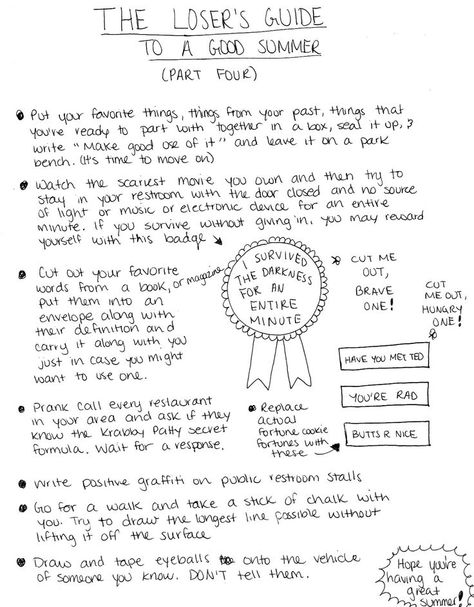 THE LOSER'S GUIDE
TO A GOOD SUMMER
(PART FOUR)
• Put your favorite things, things from your past, things that
you're ready to part with together in a box, seal it up, &
write "Make good use of it" and leave it on a park
bench. (It's time to move on)
• Watch the scariest movie you own and then try to
stay in your restroom with the door closed and no source
of light or music or electronic device for an entire
minute. If you survive without giving in, you may reward
yourself with this badge
I SURVIVED
THE DARKNESS
FOR AN
ENTIRE
MINUTE
CUT ME
OUT,
BRAVE
ONE!
CUT
ME OUT,
HUNGRY
ONE!
• Cut out your favorite
words from a book, or magazine
put them into an
envelope along with
their definition and
carry it along with you
just in case you might
want to use one.
HAVE YOU MET TED
YOU'RE RAD
BUTTS R NICE
• Prank call every restaurant
in your area and ask if they
know the Krabby Patty secret
formula. Wait for a response.
• Replace
actual
fortune cookie
fortunes with
these
• Write positive graffiti on public restroom stalls
• Go for a walk and take a stick of chalk with
you. Try to draw the longest line possible without
lifting it off the surface
• Draw and tape eyeballs onto the vehicle
of someone you know. DON'T tell them.
Hope you're
having a
great
summer!